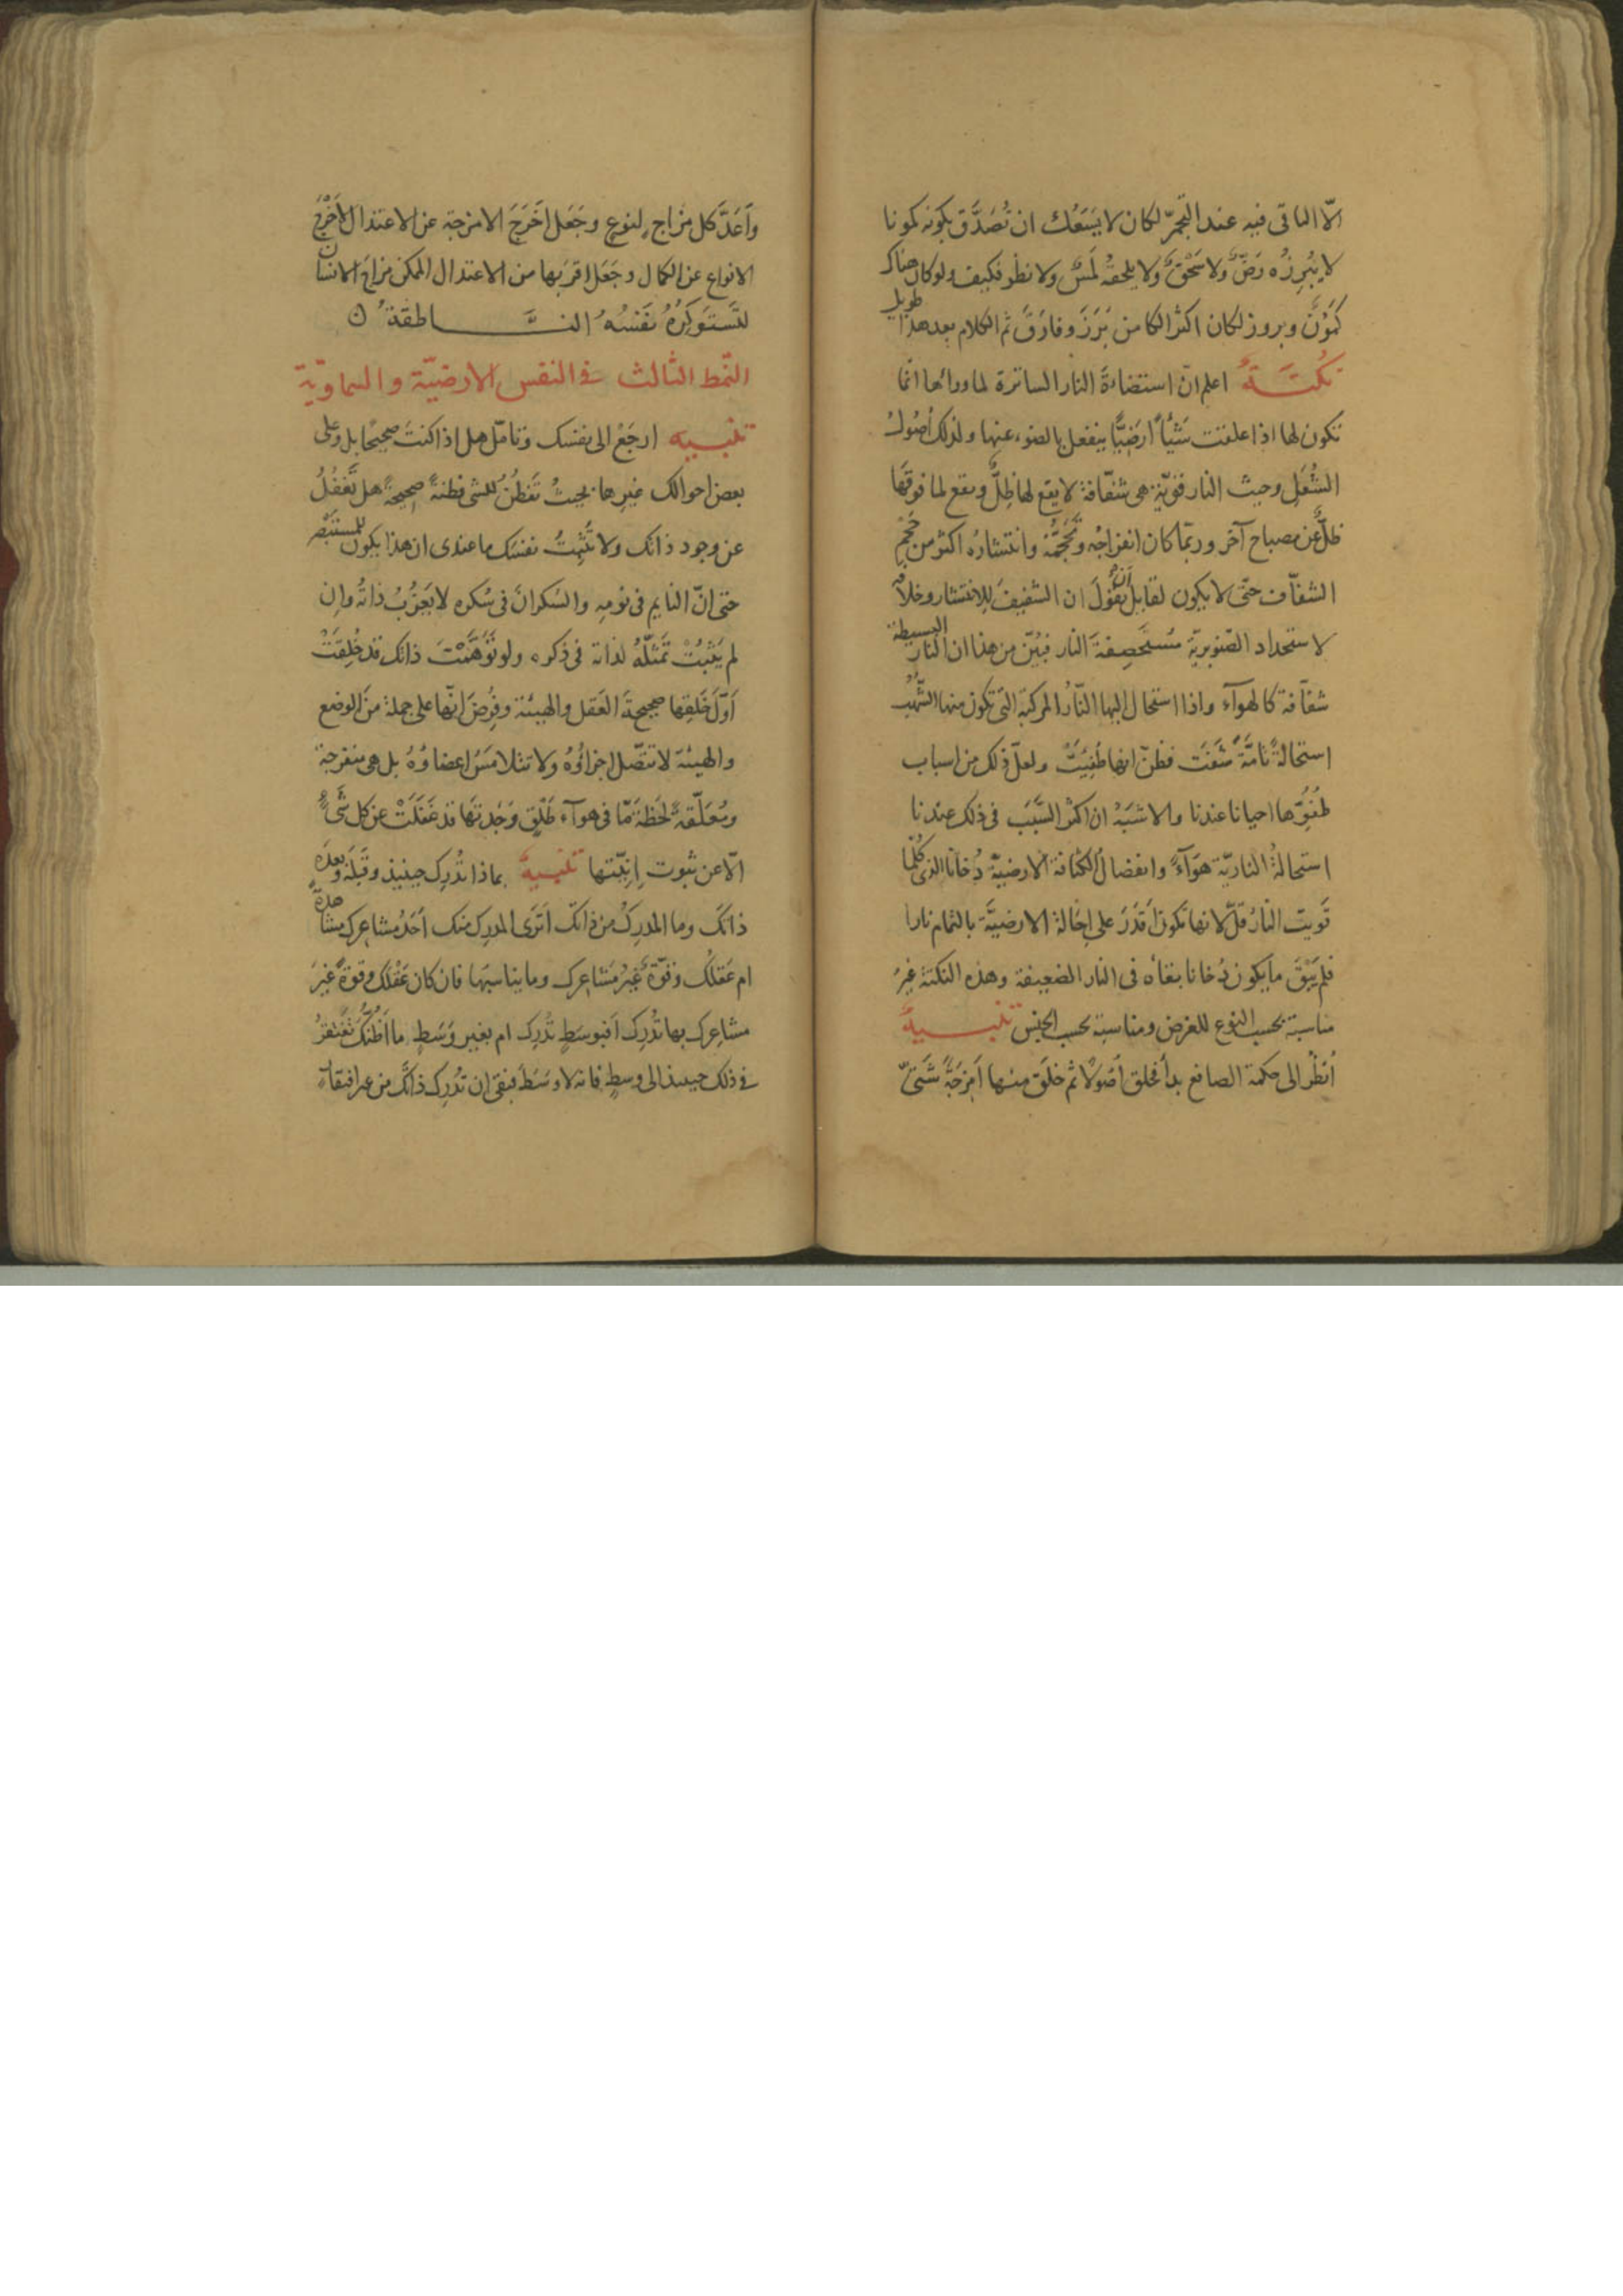 الّا الباقى فيه عند التجمّر لكان لا يسَعُك ان تُصَدِّق بكونه كمونا
لا يُبرِزُه رَضٌّ ولا سَحْقٌ ولا يلحقه لَمسٌ ولا نظر فكيف ولو كان هناك
كُمُونٌ وبروز لكان اكثر الكامن بَرَزَ وفارَقَ ثم الكلام بعد هذا طويل
نكتةٌ اعلم انّ استضاءةَ النار الساترة لما ورائها انّما
تكون لها اذا علقت شَيْئاً ارضيًّا ينفعل بالضوء عنها ولذلك أصُولُ
الشُعَل وحيث النار قويّة هى شفّافة لا يقع لها ظِلٌّ ويقع لما فوقها
ظلٌّ عن مصباح آخر وربّما كان انفراجُه وتحجّمُه وانتشاره اكثر من حجم
الشفّاف حتّى لا يكون لقايل أن يقولَ ان الشفيف للانتشار وخلافه
لاستحداد الصّنوبريّة مُستحصِفة النار فبيّن من هذا ان النار البسيطة
شفّافة كالهوآء واذا استحال اليها النّارُ المركبّة التى تكون منها الشُهُب
استحالةً تامّةً شَفّت فظنّ انها طُفِيَتْ ولعلّ ذلك من اسباب
طُفُوِّها احيانا عندنا والاشبَهُ ان اكثر السَّبَب فى ذلك عندنا
استحالةُ الناريّة هوَآءً وانفصالُ الكثافة الارضيّة دُخانا الذى كُلّما
قَويت النارُ قلّ لانها تكون أقدَرَ على إحالة الارضيَّة بالتمام نارا
فلم يَبْقَ ما يكون دُخانا بقاءه فى النار الضعيفة وهذه النكتة غيرُ
مناسبة بحسب النوع للغرض ومناسبة بحسب الجنس تنبيهٌ
اُنظُر الى حكمة الصانع بدأ فخلق أصُولًا ثم خلَق منها اَمزِجَةً شَتّى
واَعَدَّ كل مزاج لنوعٍ وجَعَل اَخرَجَ الامزجة عن الاعتدال لأخرَج
الانواع عن الكمال وجَعَل اقرَبها من الاعتدال الممكن مزاجَ الانسان
لتَستَوكِرَهُ نَفسُه الناطقةُ ن
النّمط الثالث فى النفس الارضيّة والسماويّة
تنبيه ارجَعْ الى نفسك وتأمّل هل اذا كنتَ صحيحًا بل وعلى
بعض احوالك غيرها بحيثُ تَفطُنُ للشى فطنةً صحيحةً هل تَغفُلُ
عن وجود ذاتك ولا تُثبِتُ نفسَك ما عندى ان هذا يكون للمستبصر
حتى انّ النايم فى نومِه والسَكرانَ فى سُكره لا يَعزُبُ ذاتُه وان
لم يَثبُتْ تمثّلُهُ لذاته فى ذكره ولو تَوَهَّمْتَ ذاتك قد خُلِقَتْ
اَوّلَ خَلقِها صحيحةَ العَقل والهيئة وفُرِضَ انّها على جملة من الوضع
والهيئة لا تتصّل اجزائُه ولا تتلامَسُ اعضاؤُهُ بل هى منفرجة
ومُعَلّقةٌ لحَظةً مّا فى هوآء طَلْقٍ وَجَدتَها قد غَفَلَتْ عن كل شىءٍ
الّا عن ثبوت اِنيّتها تنبيهٌ بماذا تُدرِك حينيذ وقَبلَهُ وبعدَهُ
ذاتَك وما المدرِكُ من ذاتك اَتَرى المدرِك منك أحَدُ مشاعِرِك مشاهدةً
ام عَقلُك وقوّةٌ غيرُ مَشاعرك وما يناسبها فان كان عَقْلَك وقوةً غيرَ
مشاعِرِك بها تُدرِك اَفبوسَطٍ تُدرِك ام بغير وَسَطٍ ما اَظُنُّكَ تفتقرُ
فى ذلك حينيذ الى وسطٍ فانه لا وسَطَ فبقى ان تُدرِك ذاتَك من غير افتقار